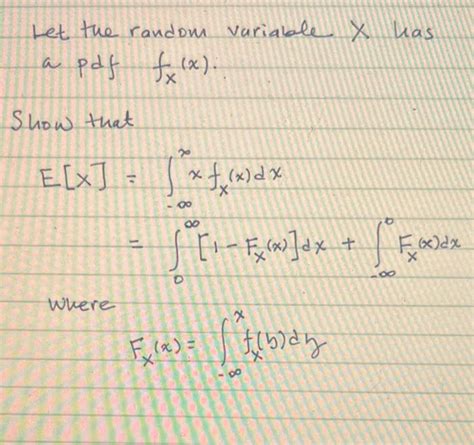 Let the random variable X has
a pdf f_X(x).
Show that
E[X] = ∫_{-∞}^{∞} x f_X(x) dx
= ∫_{0}^{∞} [1 - F_X(x)] dx + ∫_{-∞}^{0} F_X(x) dx
where
F_X(x) = ∫_{-∞}^{x} f_X(y) dy